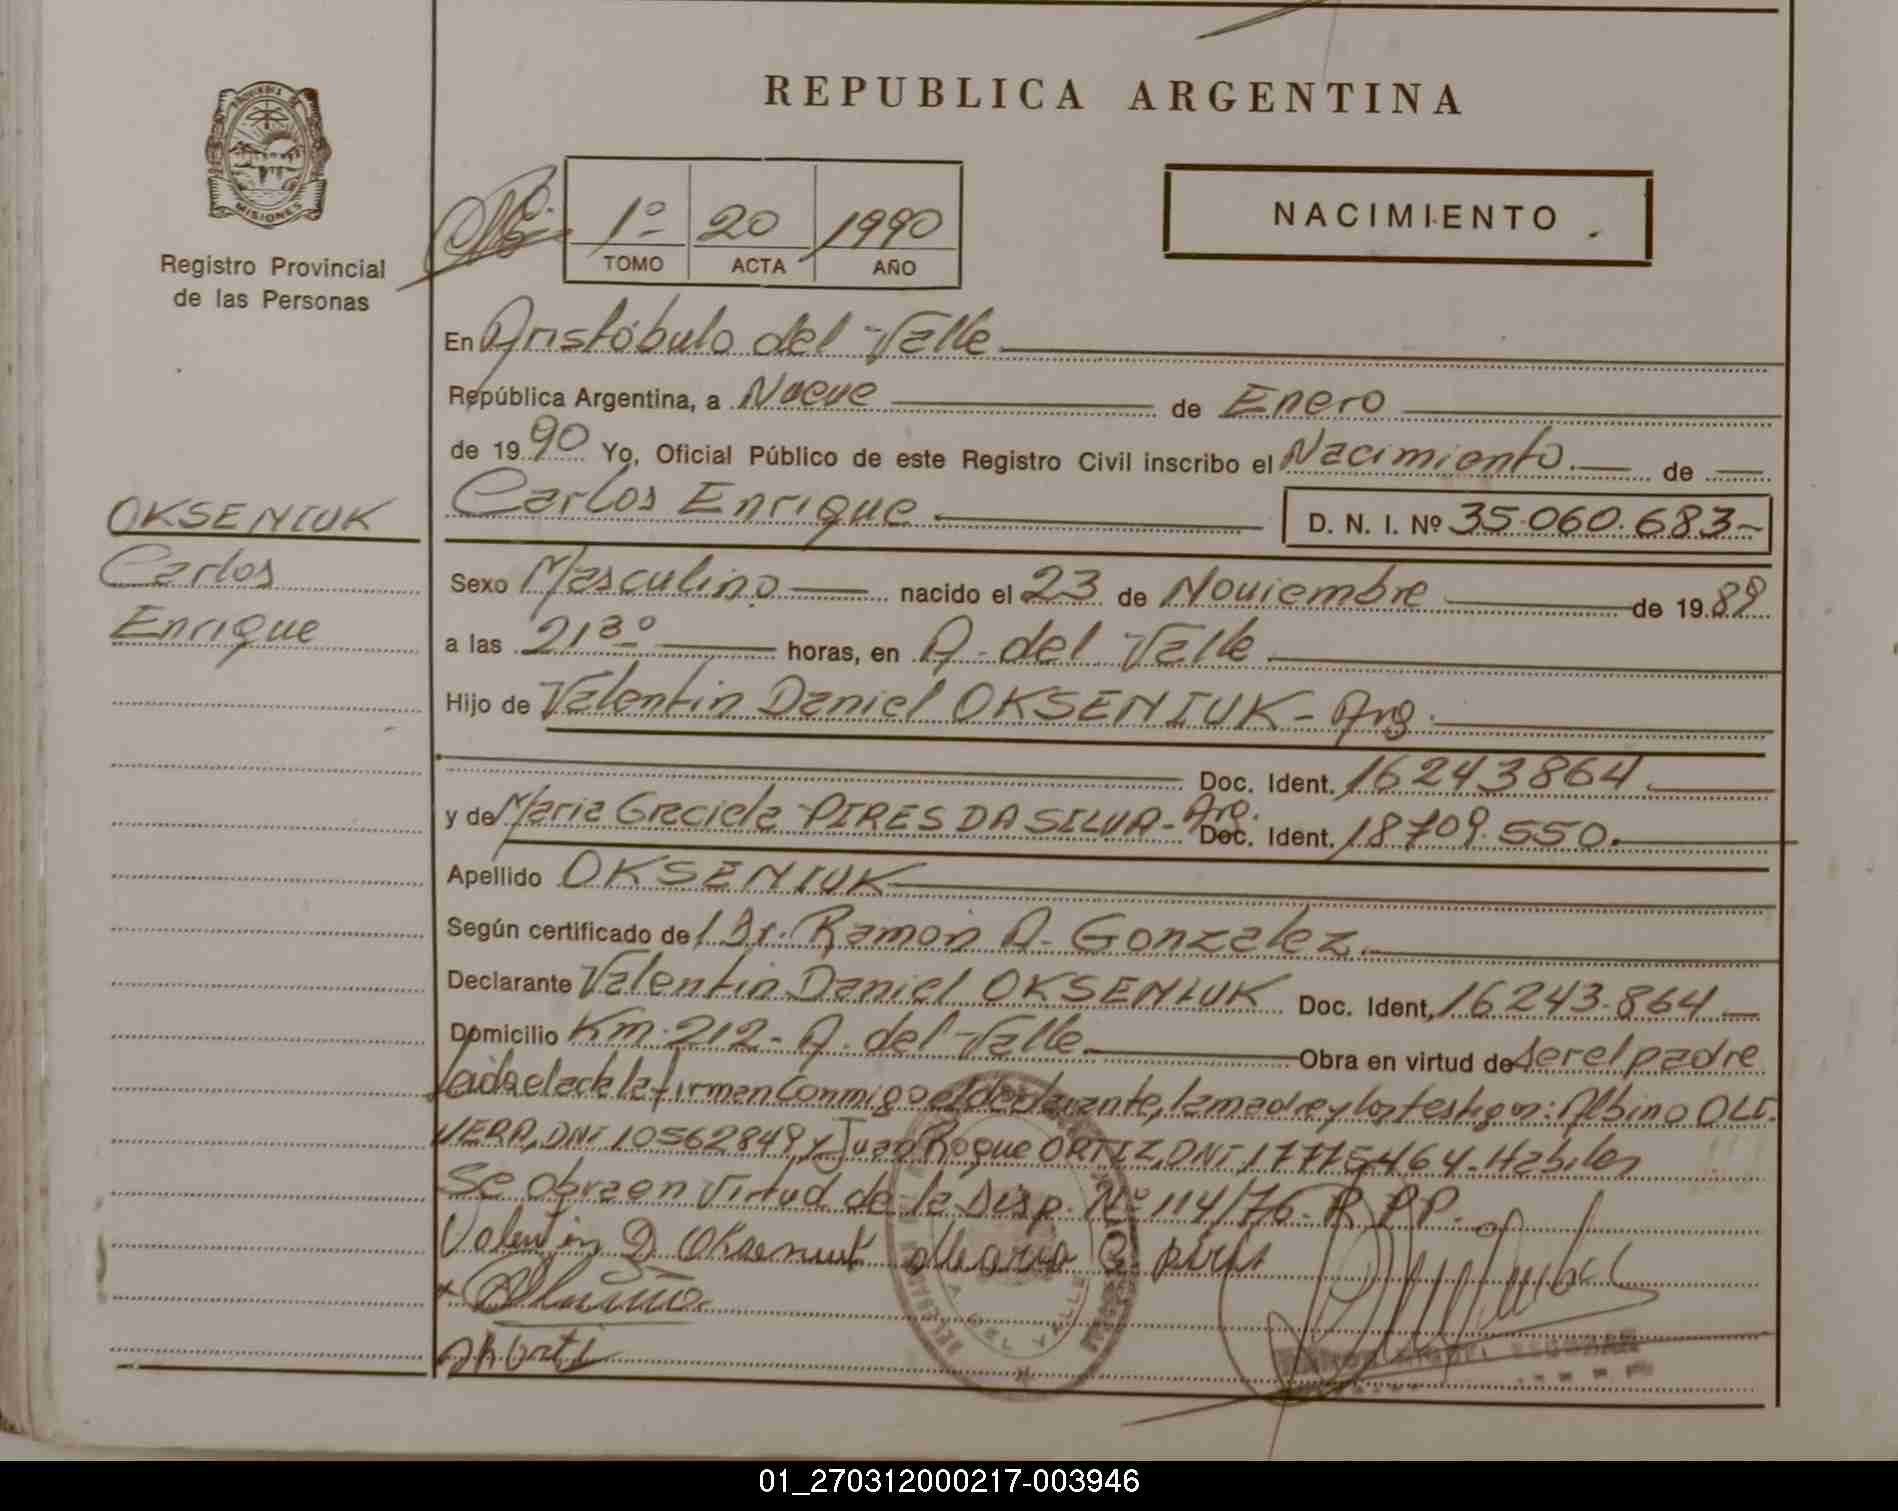 REPUBLICA ARGENTINA
PROVINCIA DE
MISIONES
Registro Provincial
de las Personas
1º 20 1990
TOMO ACTA AÑO
NACIMIENTO
En Aristóbulo del Valle
República Argentina, a Nueve de Enero
de 1990 Yo, Oficial Público de este Registro Civil inscribo el Nacimiento de
Carlos Enrique D. N. I. Nº 35.060.683
OKSENIUK
Carlos
Enrique
Sexo Masculino nacido el 23 de Noviembre de 1989
a las 21 30 horas, en A. del Valle
Hijo de Valentin Daniel OKSENIUK - Arg.
Doc. Ident. 16243864
y de Maria Graciela PIRES DA SILVA - Arg. Doc. Ident. 18709.550.
Apellido OKSENIUK
Según certificado del Dr. Ramon A. Gonzalez.
Declarante Valentin Daniel OKSENIUK Doc. Ident. 16243.864
Domicilio Km. 212 - A. del Valle Obra en virtud de ser el padre
Leida el acta la firman conmigo el declarante, la madre y los testigos: Albino OLI-
VERA, DNI 10562849 y Juan Roque ORTIZ, DNI 17775464. Habiles
Se obra en Virtud de la Disp. Nº 114/76. R.P.P.
Valentin D Okseniuk Maria G. pires
01_270312000217-003946